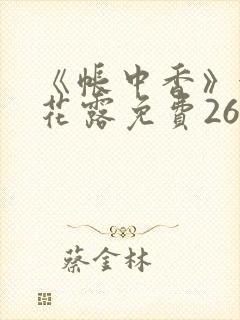 《帐中香》
花露免費26
蔡金林